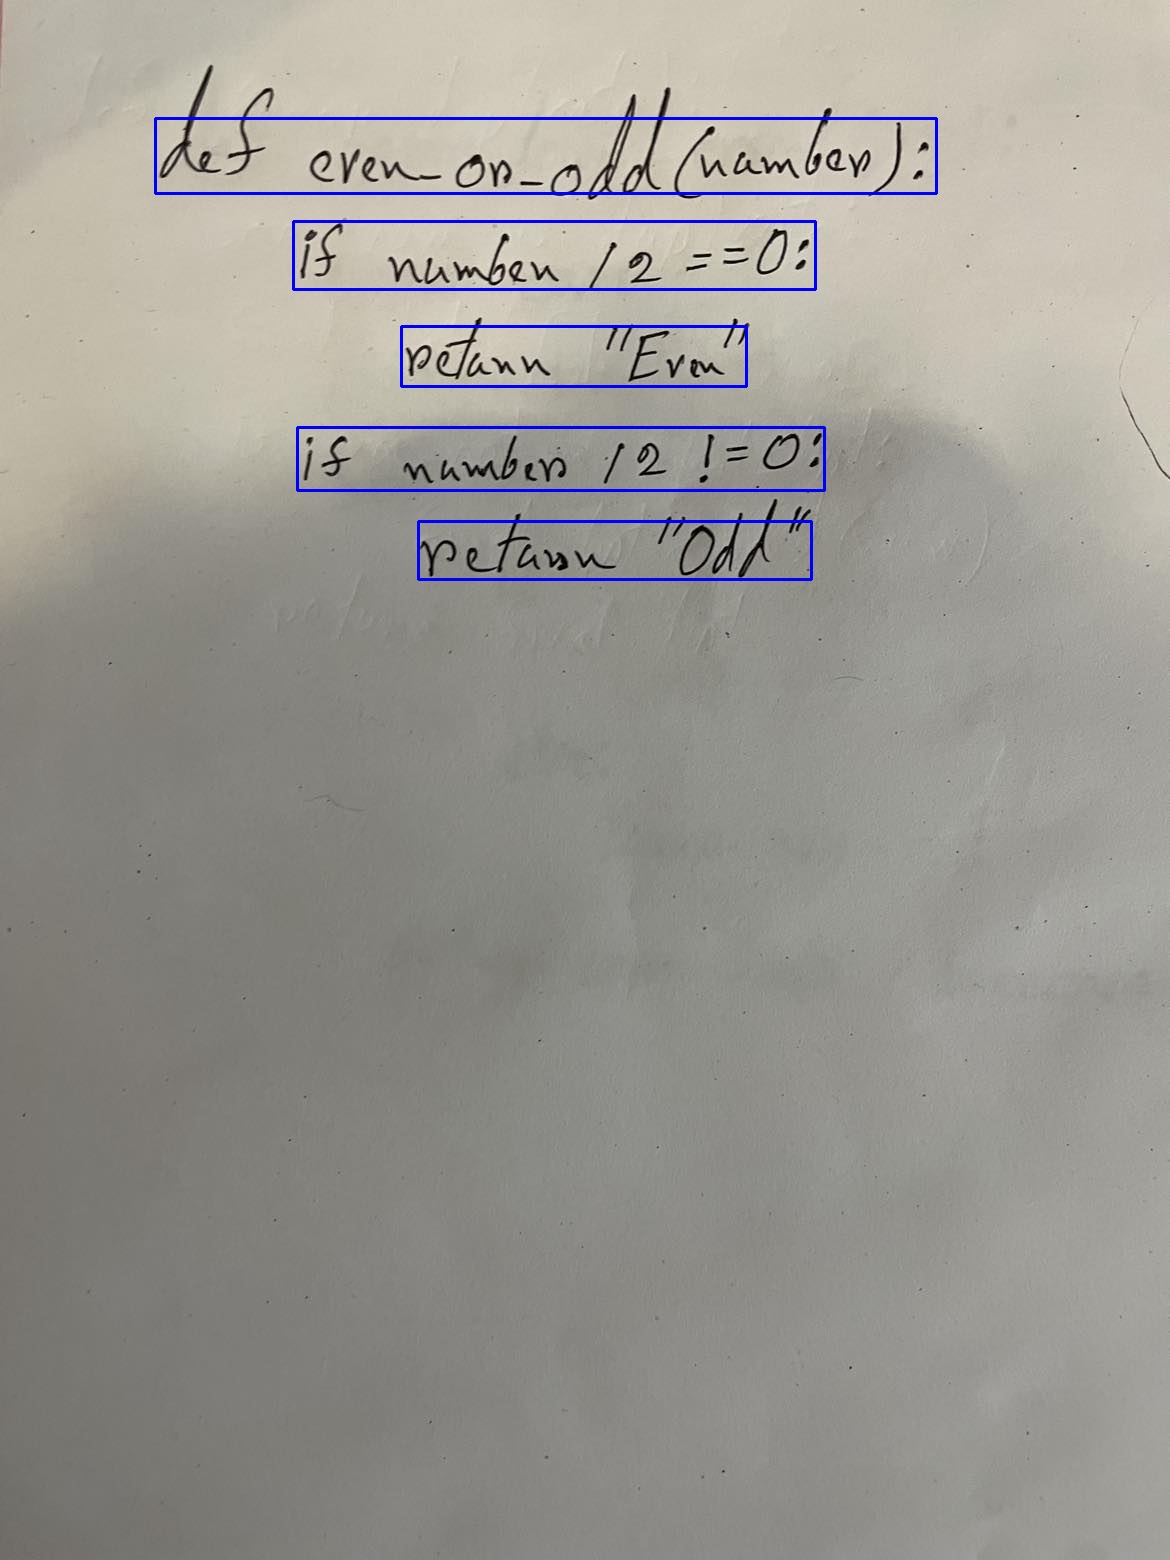 def even_or_odd(number):
if number / 2 == 0:
return "Even"
if number / 2 != 0:
return "Odd"